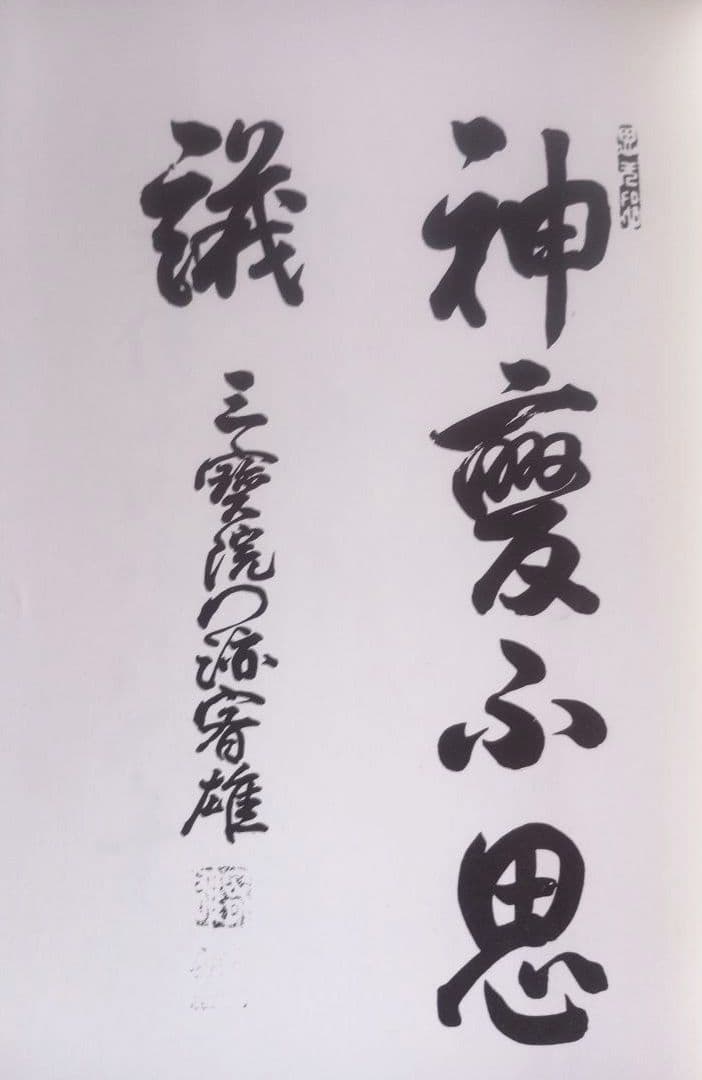 神變不思
議
三寶院門跡雄